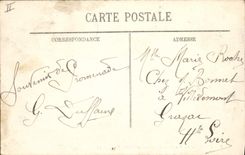 II
CARTE POSTALE
CORRESPONDANCE
ADRESSE
Souvenir de Promenade
G.
Mlle Marie Roche
Chez Mr Bonnet
à
Hte Loire